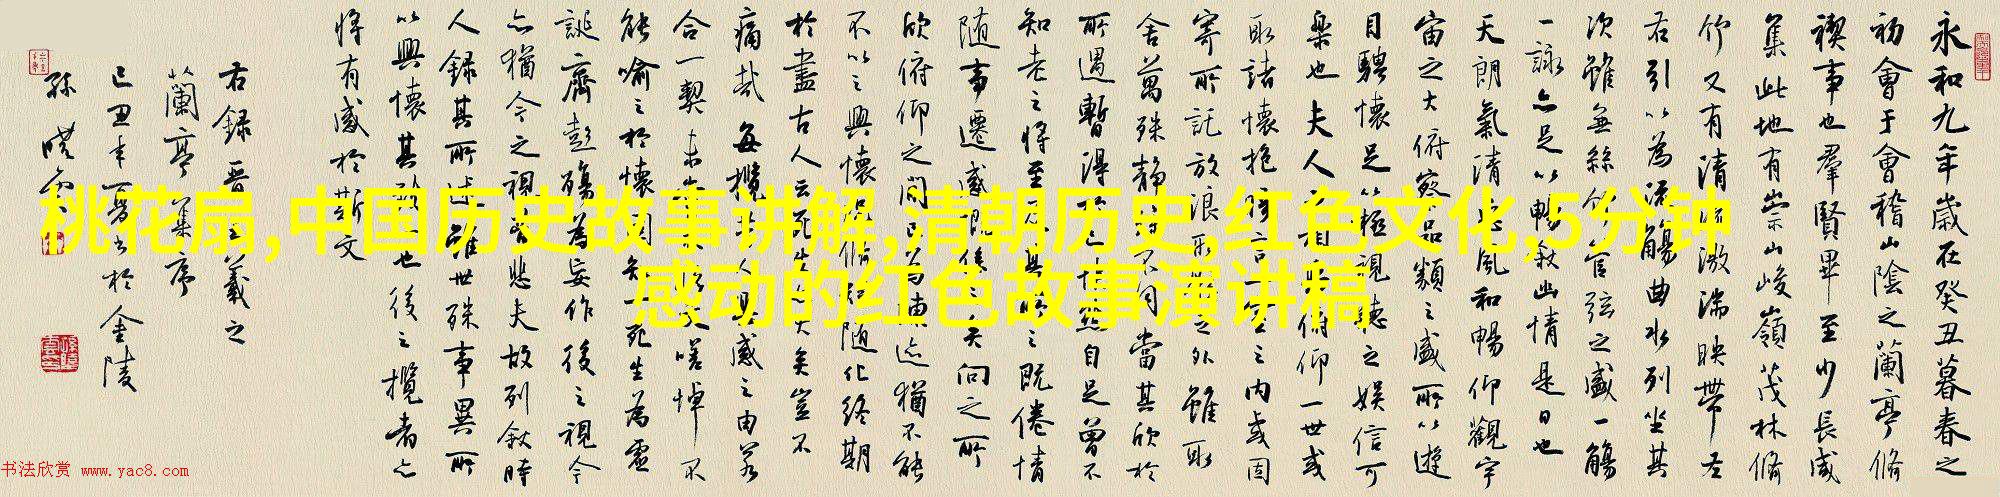 桃花扇,中国历史故事讲解,清朝历史,红色文化,5分钟
感动的红色故事演讲稿
永和九年歲在癸丑暮春之
初會于會稽山陰之蘭亭脩
禊事也羣賢畢至少長咸
集此地有崇山峻嶺茂林脩
竹又有清流激湍映帶左
右引以為流觴曲水列坐其
次雖無絲竹管弦之盛一觴
一詠亦足以暢敘幽情是日也
天朗氣清惠風和暢仰觀宇
宙之大俯察品類之盛所以遊
目騁懷足以極視聽之娛信可
樂也夫人之相與俯仰一世或
取諸懷抱晤言一室之內或因
寄所託放浪形骸之外雖取
舍萬殊靜躁不同當其欣於
所遇暫得於己怏然自足曾不
知老之將至及其所之既倦情
随事遷感慨係之矣向之所
欣俯仰之間已為陳迹猶不能
不以之興懷況脩短随化終期
於盡古人云死生亦大矣豈不
痛哉每攬昔人興感之由若
合一契未嘗不臨文嗟悼不
能喻之於懷固知一死生為虛
誕齊彭殤為妄作後之視今
亦猶今之視昔悲夫故列敘時
人録其所述雖世殊事異所
以興懷其致一也後之攬者亦
將有感於斯文
右録晋王羲之
蘭亭集序
己丑年夏書於金陵
孫曉
书法欣赏 www.yac8.com